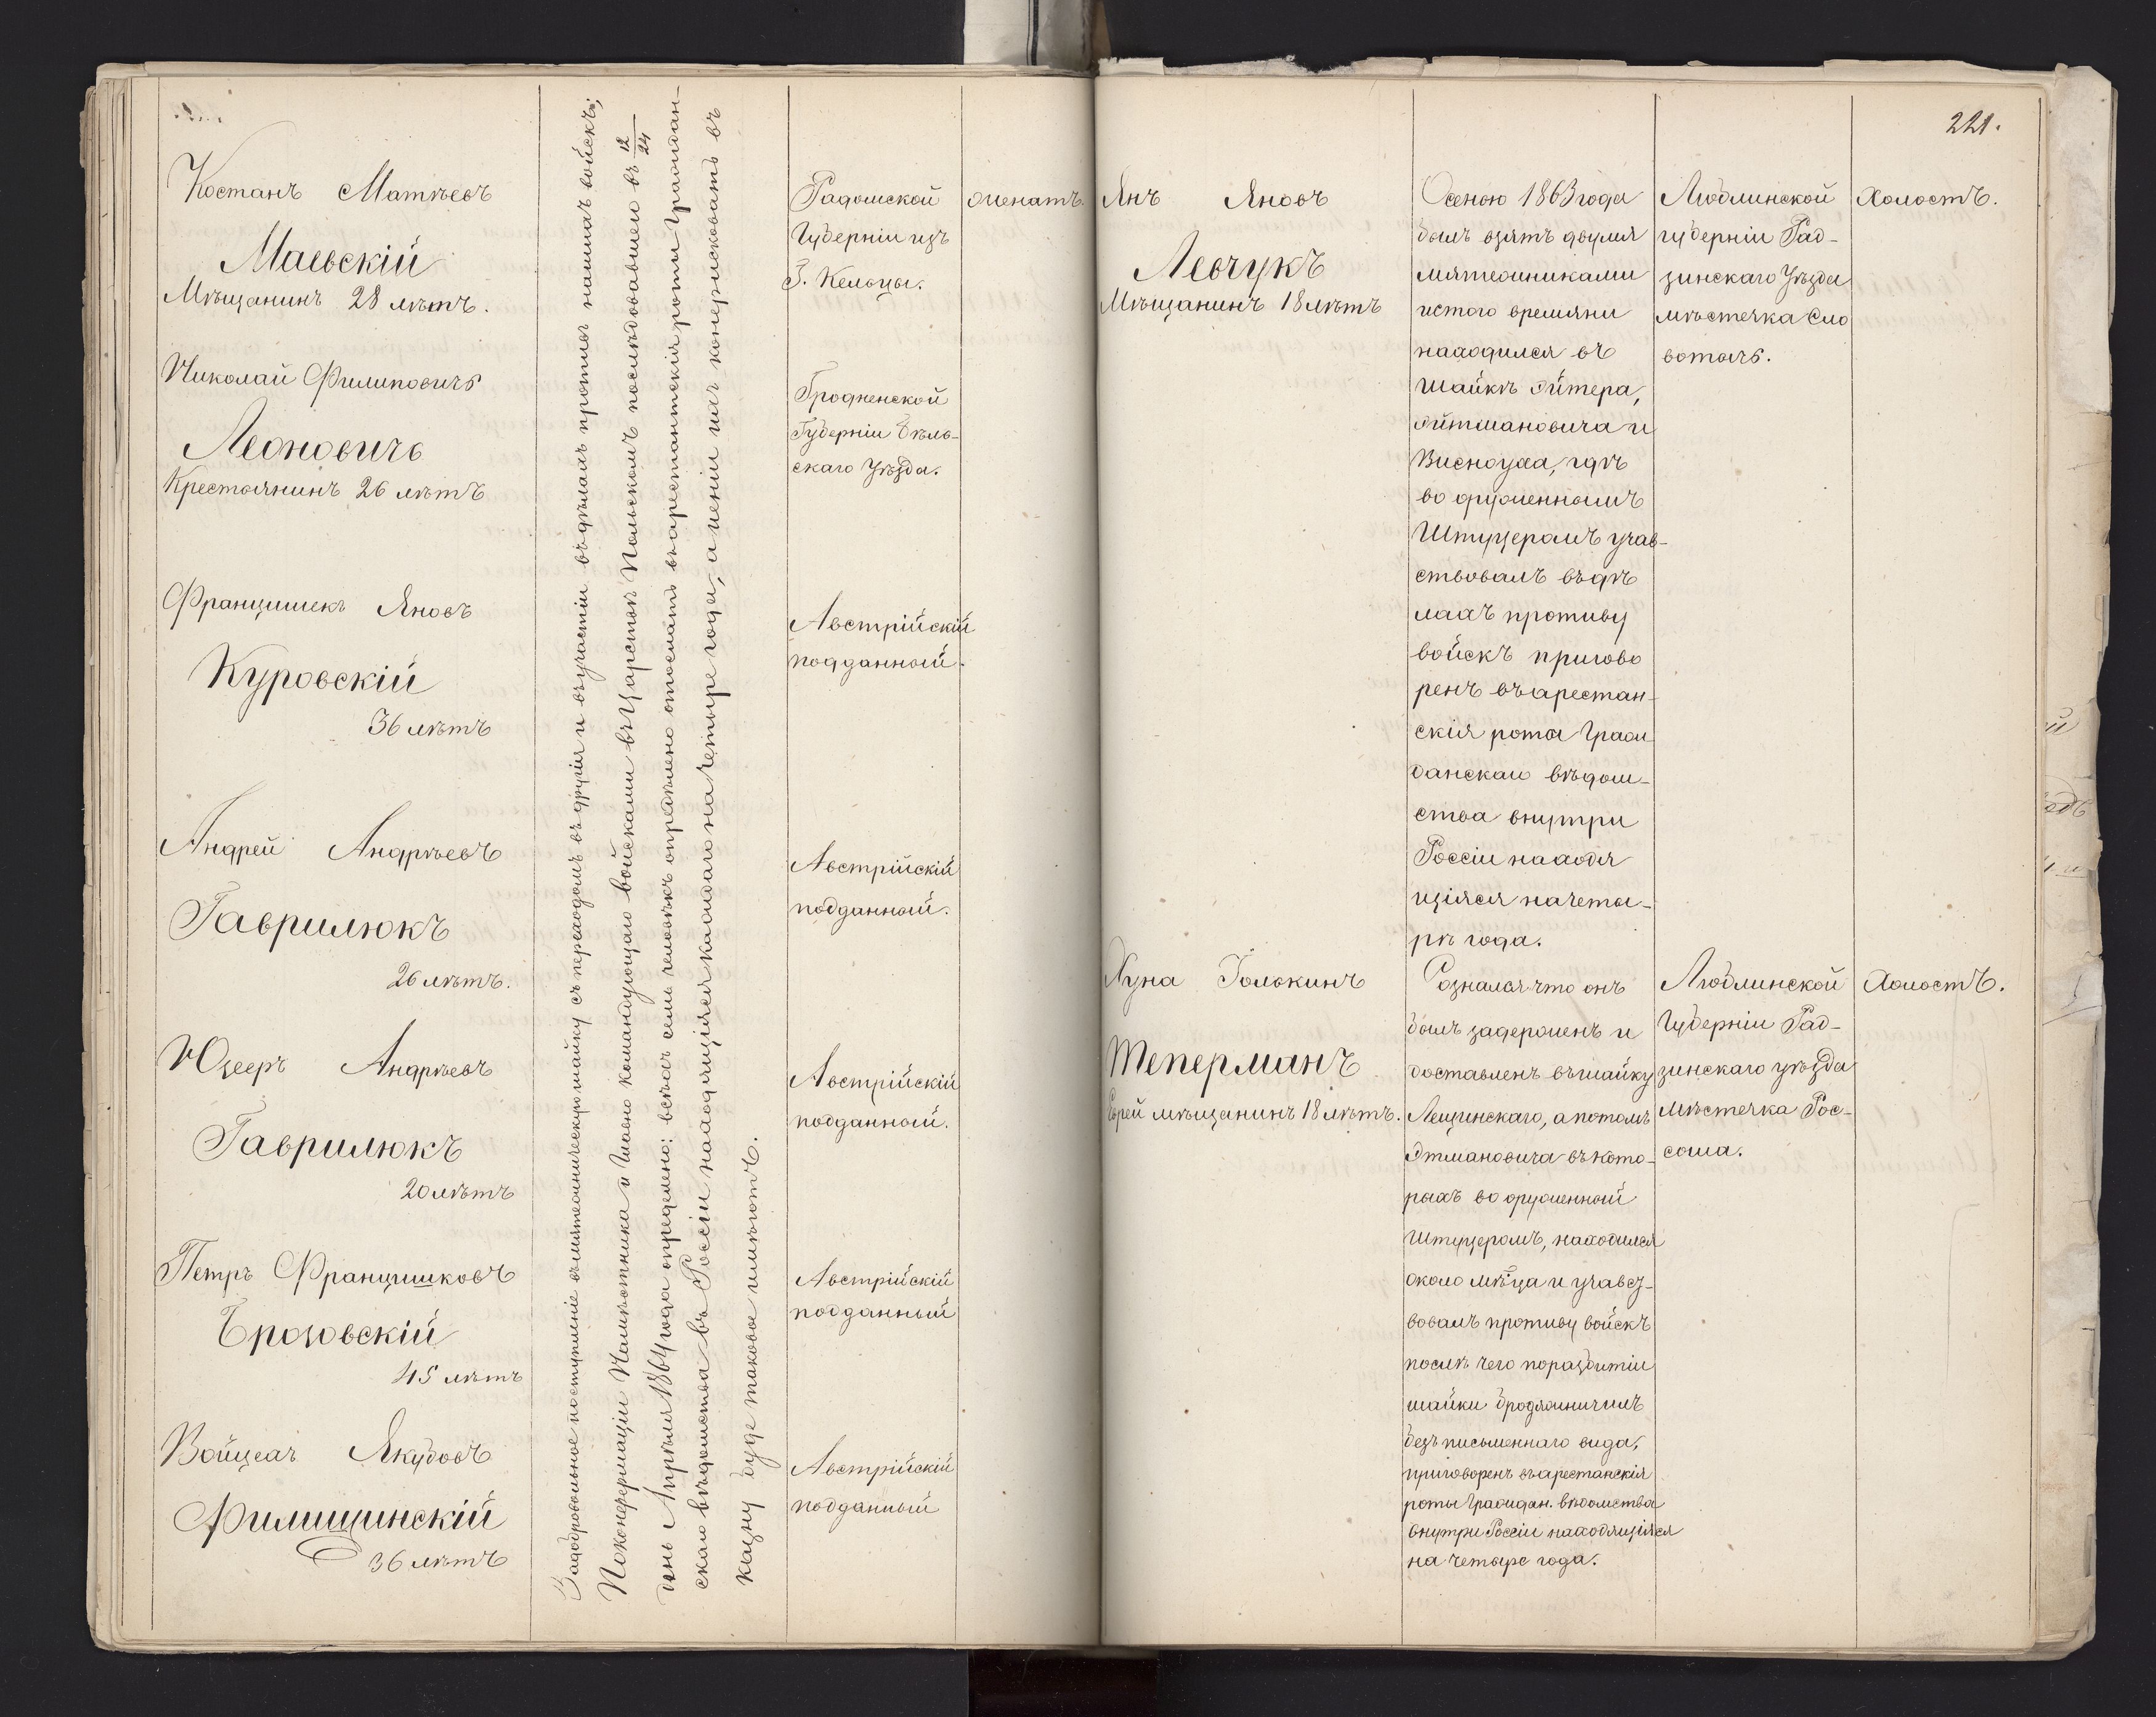 221.
Костанъ Матвѣевъ
Маевскій
Мѣщанинъ 28 лѣтъ.
Николай Филиповичъ
Леоновичъ
Крестьянинъ 26 лѣтъ
Францишекъ Яновъ
Куровскій
36 лѣтъ
Андрей Андрѣевъ
Гаврилюкъ
26 лѣтъ.
Юзефъ Андрѣевъ
Гаврилюкъ
20 лѣтъ
Петръ Францишковъ
45 лѣтъ
Войцехъ Якубовъ
Филищинскій
36 лѣтъ
За добровольное поступленіе въ мятежническую шайку съ переходомъ въ другія и въ участіи въ дѣлахъ противъ нашихъ войскъ;
По конфермаціи Намѣстника и Главно командующаго войсками въ Царствѣ Польскомъ послѣдовавшею въ 12/24
день Апрѣля 1864 года опредѣлено: всѣхъ семь человѣкъ отослать въ арестантскія роты Граждан-
скаго вѣдомства въ Россіи находящіяся каждаго на четыре года, а имѣніи ихъ конфисковать въ
казну буде таковое имѣютъ.
Радомской
Губерніи изъ
Г. Кельцы.
женатъ.
Гродненской
Губерніи Бѣль-
скаго Уѣзда.
Австрійскій
подданный.
Австрійскій
подданный.
Австрійскій
подданный.
Австрійскій
подданный
Австрійскій
подданный
Янъ Яновъ
Левчукъ
Мѣщанинъ 18 лѣтъ
Осенью 1863 года
былъ взятъ двумя
мятежниками
и стого времяни
находился въ
шайкѣ Эйтера,
Эйтмановича и
где
во оруженнымъ
Штуцеромъ учав-
ствовалъ въ дѣ
лахъ противу
войскъ пригово
ренъ въ арестан-
скія роты Граж
данскаго вѣдом-
ства внутри
Россіи находя
щіяся на четы-
рѣ года.
Люблинской
губерніи Рад-
зинскаго Уѣзда
мѣстечка Сло
ватычь.
Холостъ.
Хуна Голокинъ
Теперманъ
Еврей мѣщанинъ 18 лѣтъ.
Сознался что онъ
былъ задержанъ и
доставленъ въ шайку
Лещинскаго, а потомъ
Этмановича въ кото-
рыхъ во оруженный
штуцеромъ, находился
около мѣ-ца и учавст-
вовалъ противу войскъ
послѣ чего по разбитіи
шайки бродяжничилъ
безъ письменнаго вида,
приговоренъ въ арестанскія
роты Граждан. вѣдомства
внутри Россіи находящіяся
на четыре года.
Люблинской
Губерніи Рад-
зинскаго уѣзда
Мѣстечка Рос-
соша.
Холостъ.